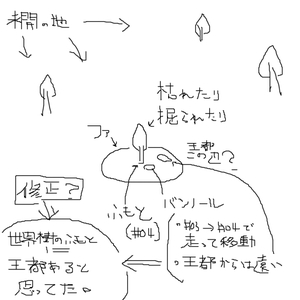 柵の地
枯れたり
掘られたり
ファ
王都
この辺?
修正?
ふもと
(#04)
バンノール
世界樹のふもと
王都あると
思ってた。
"#03→#04で
走って移動
。王都からは遠い